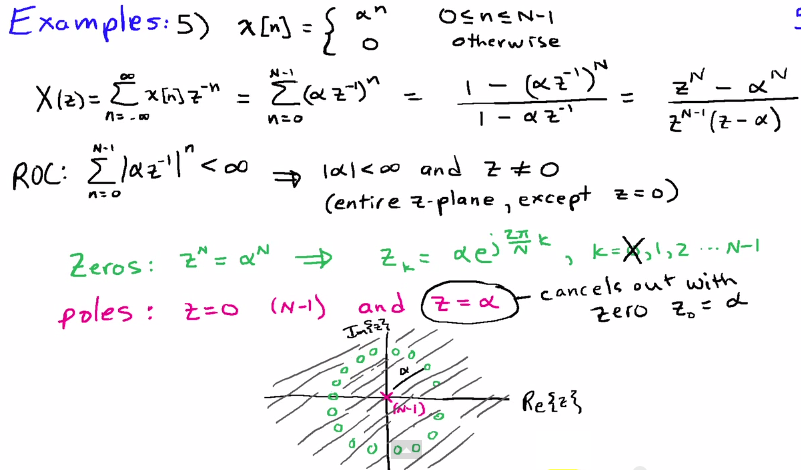 Examples: 5) x[n] = { αⁿ 0≤n≤N-1
0 otherwise
5
X(z) = ∑_{n=-∞}^{∞} x[n] z⁻ⁿ = ∑_{n=0}^{N-1} (α z⁻¹)ⁿ = (1 - (α z⁻¹)ᴺ) / (1 - α z⁻¹) = (zᴺ - αᴺ) / (zᴺ⁻¹(z - α))
ROC: ∑_{n=0}^{N-1} |α z⁻¹|ⁿ < ∞ ⇒ |α| < ∞ and z ≠ 0
(entire z-plane, except z=0)
Zeros: zᴺ = αᴺ ⇒ z_k = α e^{j (2π/N) k}, k = 0, 1, 2 ... N-1
poles: z=0 (N-1) and z = α cancels out with
zero z₀ = α
Im{z}
α
(N-1)
Re{z}